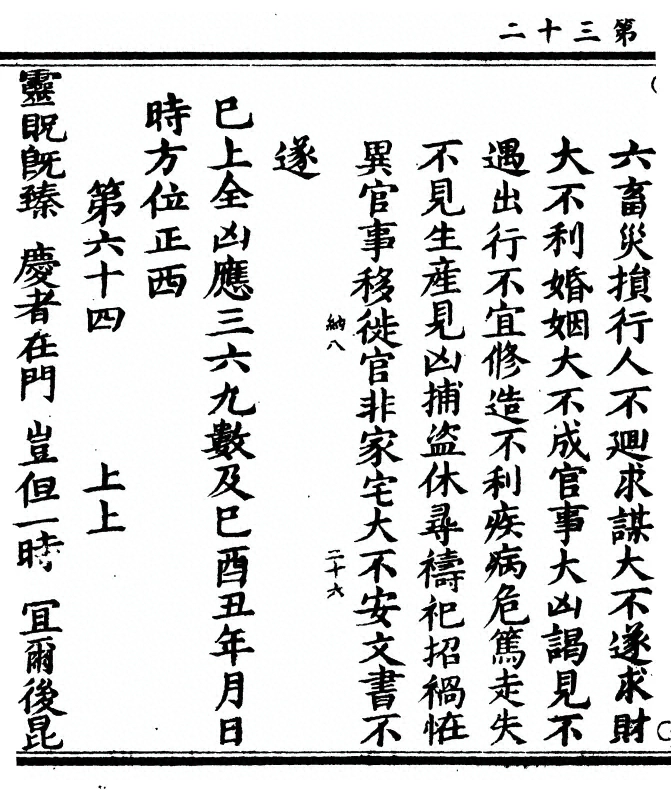 第三十二
六畜災損行人不廻求謀大不遂求財
大不利婚姻大不成官事大凶謁見不
遇出行不宜修造不利疾病危篤走失
不見生產見凶捕盜休尋禱祀招禍恠
異官事移徙官非家宅大不安文書不
納八
二十六
遂
巳上全凶應三六九數及巳酉丑年月日
時方位正西
第六十四 上上
靈貺既臻 慶者在門 豈但一時 冝爾後昆